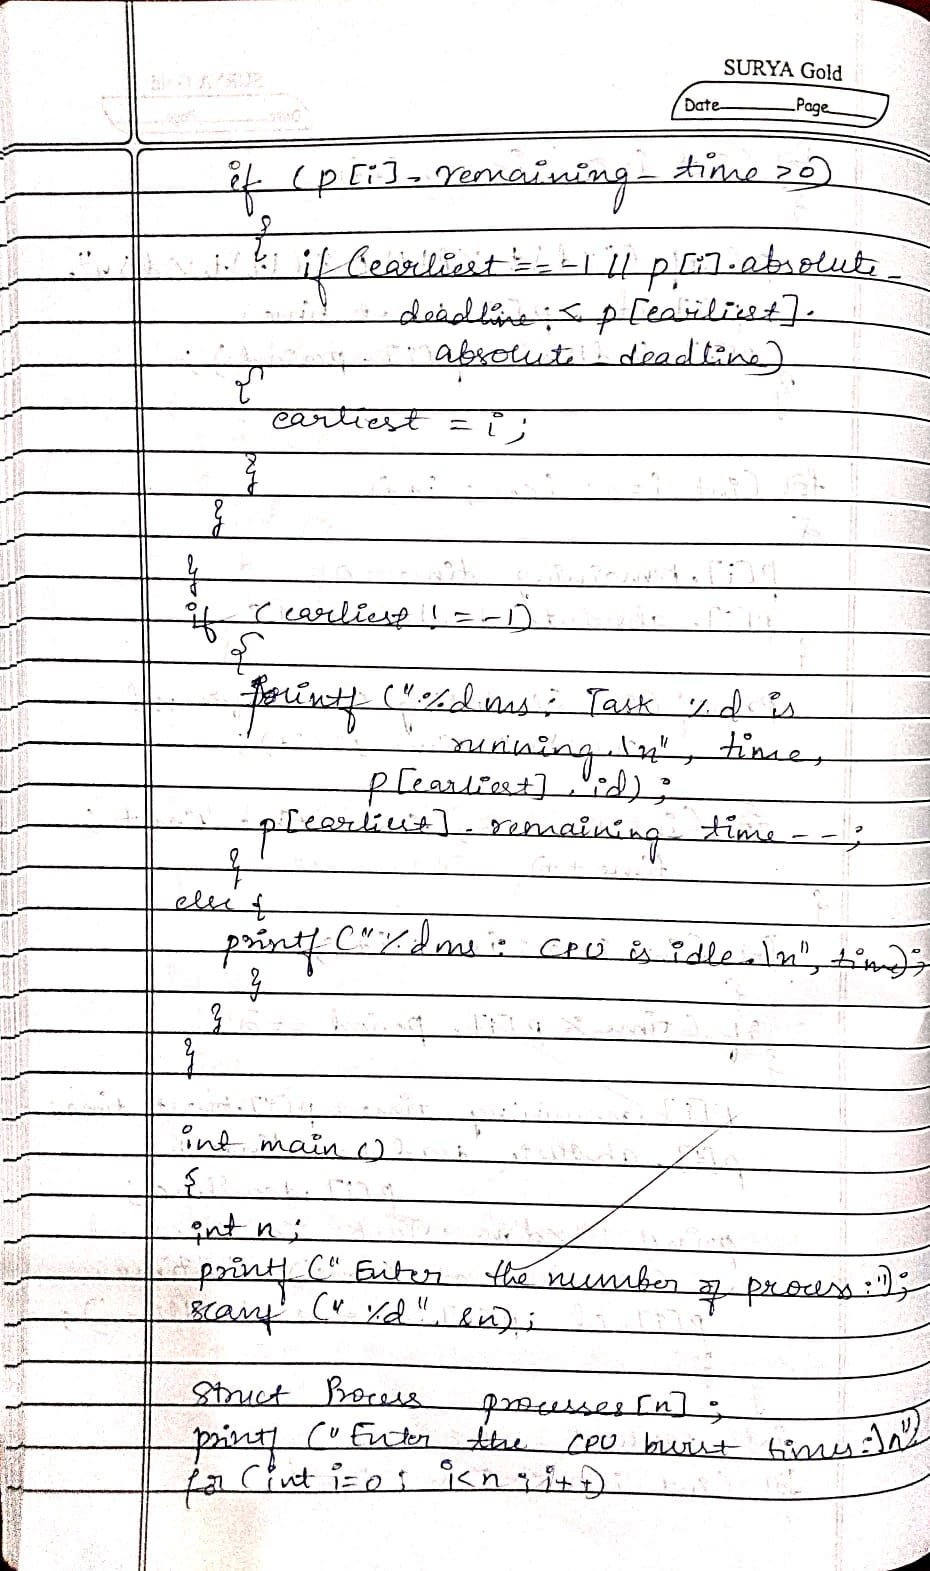 SURYA Gold
Date Page
if (p[i]. remaining_time >0)
{
if (earliest == -1 || p[i].absolute_
deadline < p[earliest].
absolute_deadline)
{
earliest = i;
}
}
}
if (earliest != -1)
{
printf ("%dms : Task %d is
running.\n", time,
p[earliest].id);
p[earliest]. remaining_time --;
}
else {
printf ("%dms : CPU is idle.\n", time);
}
}
}
int main ()
{
int n;
printf ("Enter the number of process:");
scanf ("%d", &n);
struct Process processes[n];
printf ("Enter the CPU burst times:\n")
for (int i=0; i<n; i++)